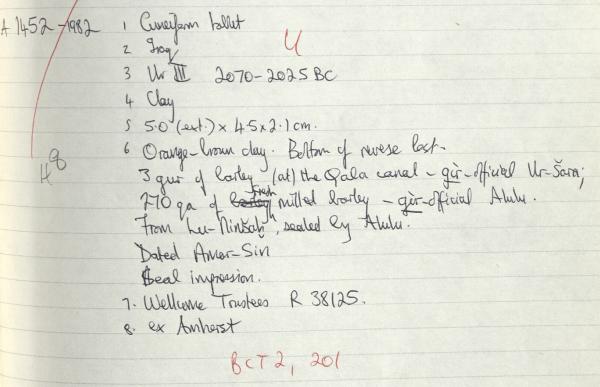 A 1452-1982 1 Cuneiform tablet
U
2 Iraq
3 Ur III 2070-2025 BC
4 Clay
5 5.0 (ext.) x 4.5 x 2.1 cm.
48
6 Orange-brown clay. Bottom of reverse lost.
3 gur of barley (at) the Qala canal - gìr-official Ur-Šara;
270 qa of fresh milled barley - gìr-official Alulu.
From Lu-Ninšaḫ, sealed by Alulu.
Dated Amar-Sin
Seal impression.
7. Wellcome Trustees R 38125.
8. ex Amherst
BCT 2, 201